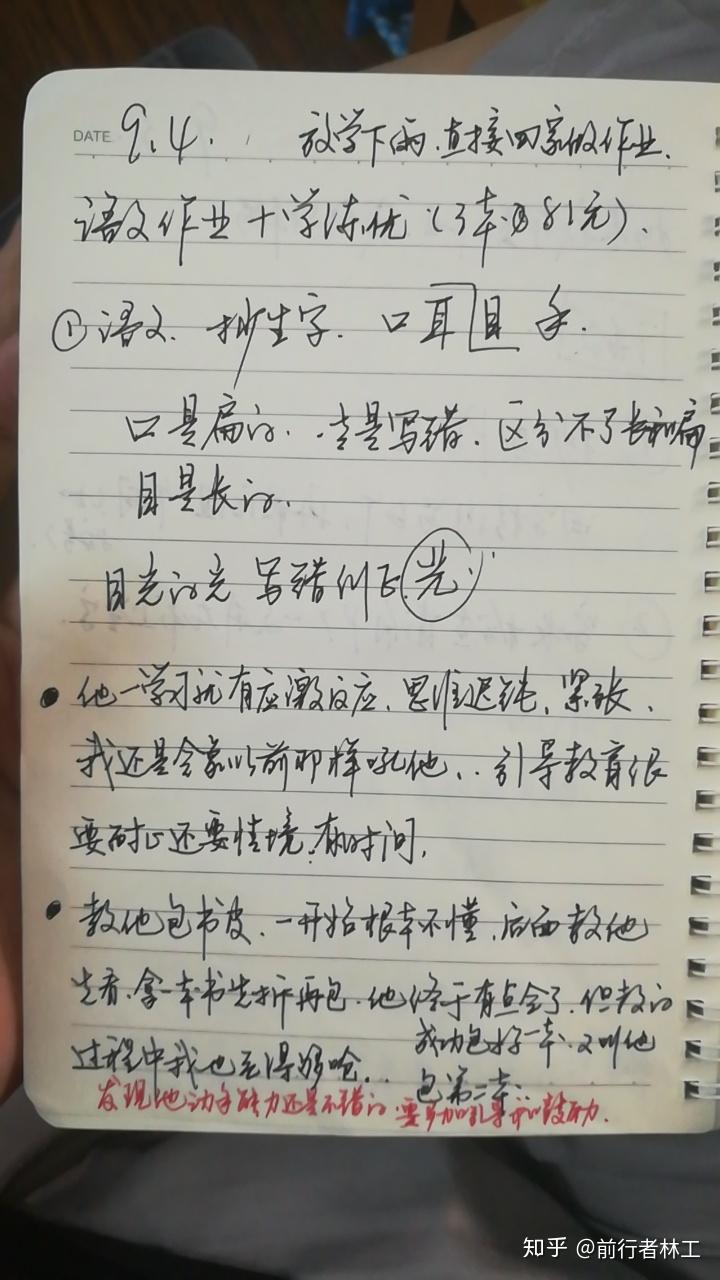 DATE 9.4. 放学下雨.直接回家做作业.
语文作业十学练优(3本书81元).
①语文. 抄生字. 口耳目 手.
口是扁的. 老是写错. 区分不了长和扁
目是长的.
目光的光 写错例子 光
他一学习就有应激反应. 思维迟钝. 紧张.
我还是会象以前那样吼他.. 引导教育很
要耐心还要情境.有时间.
教他包书皮. 一开始根本不懂.后面教他
先看.拿一本书先拆再包.他终于有点会了.但教的
过程中我也觉得够呛... 成功包好一本.又叫他
包第二本..
发现他动手能力还是不错的.要多加引导和鼓励.
知乎 @前行者林工